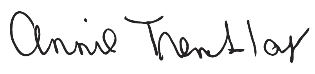 Annie Tremblay